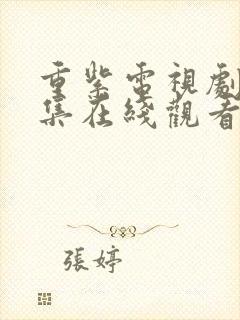 重紫電視劇
集在綫觀看
張婷